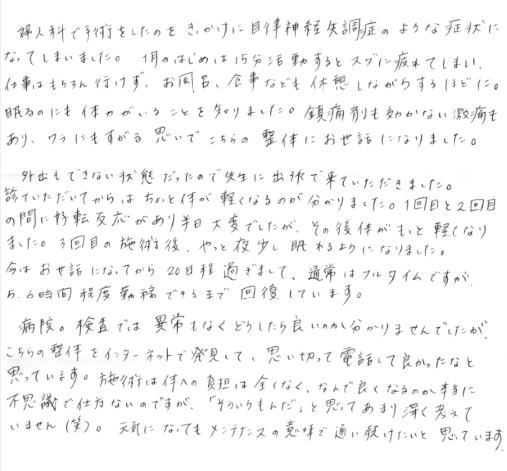 婦人科で手術をしたのをきっかけに自律神経失調症のような症状に
なってしまいました。1月のはじめは15分活動するとスグに疲れてしまい、
仕事はもちろん行けず、お風呂、食事なども休憩しながらするほどに。
眠るのにも体力がいることを知りました。鎮痛剤も効かない激痛も
あり、ワラにもすがる思いでこちらの整体にお世話になりました。
外出もできない状態だったので先生に出張で来ていただきました。
診ていただいてからはちょっと体が軽くなるのが分かりました。1回目と2回目
の間に好転反応があり半日大変でしたが、その後体がもっと軽くなり
ました。3回目の施術後、やっと夜少し眠れるようになりました。
今はお世話になってから20日程過ぎまして、通常はフルタイムですが
5.6時間程度勤務できるまで回復しています。
病院の検査では異常もなくどうしたら良いのか分かりませんでしたが、
こちらの整体をインターネットで発見して、思い切って電話して良かったなと
思っています。施術は体への負担は全くなく、なんで良くなるのか本当に
不思議で仕方ないのですが、「そういうもんだ」と思ってあまり深く考えて
いません(笑)。元気になってもメンテナンスの意味で通い続けたいと思っています